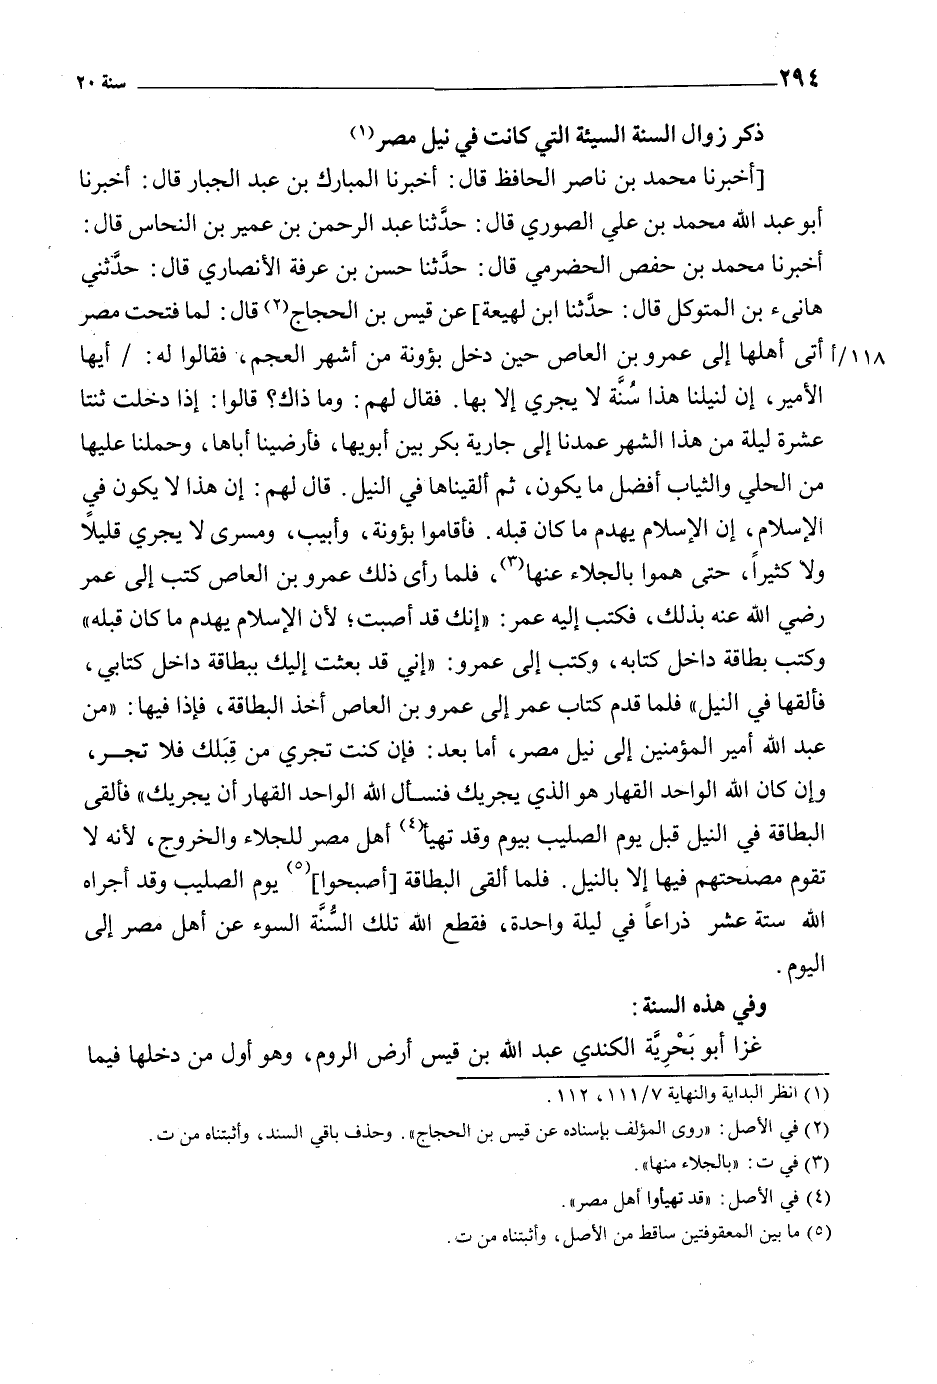 ٢٩٤ سنة ٢٠
ذكر زوال السنة السيئة التي كانت في نيل مصر(١)
[أخبرنا محمد بن ناصر الحافظ قال: أخبرنا المبارك بن عبد الجبار قال: أخبرنا
أبو عبد الله محمد بن علي الصوري قال: حدَّثنا عبد الرحمن بن عمير بن النحاس قال:
أخبرنا محمد بن حفص الحضرمي قال: حدَّثنا حسن بن عرفة الأنصاري قال: حدَّثني
هانىء بن المتوكل قال: حدَّثنا ابن لهيعة] عن قيس بن الحجاج(٢) قال: لما فتحت مصر
١١٨/أ أتى أهلها إلى عمرو بن العاص حين دخل بؤونة من أشهر العجم، فقالوا له: / أيها
الأمير، إن لنيلنا هذا سُنَّة لا يجري إلا بها. فقال لهم: وما ذاك؟ قالوا: إذا دخلت ثنتا
عشرة ليلة من هذا الشهر عمدنا إلى جارية بكر بين أبويها، فأرضينا أباها، وحملنا عليها
من الحلي والثياب أفضل ما يكون، ثم ألقيناها في النيل. قال لهم: إن هذا لا يكون في
الإسلام، إن الإسلام يهدم ما كان قبله. فأقاموا بؤونة، وأبيب، ومسرى لا يجري قليلاً
ولا كثيراً، حتى هموا بالجلاء عنها(٣)، فلما رأى ذلك عمرو بن العاص كتب إلى عمر
رضي الله عنه بذلك، فكتب إليه عمر: «إنك قد أصبت؛ لأن الإسلام يهدم ما كان قبله»
وكتب بطاقة داخل كتابه، وكتب إلى عمرو: «إني قد بعثت إليك ببطاقة داخل كتابي،
فألقها في النيل» فلما قدم كتاب عمر إلى عمرو بن العاص أخذ البطاقة، فإذا فيها: «من
عبد الله أمير المؤمنين إلى نيل مصر، أما بعد: فإن كنت تجري من قِبَلك فلا تجـــر،
وإن كان الله الواحد القهار هو الذي يجريك فنسأل الله الواحد القهار أن يجريك» فألقى
البطاقة في النيل قبل يوم الصليب بيوم وقد تهيأ(٤) أهل مصر للجلاء والخروج، لأنه لا
تقوم مصلحتهم فيها إلا بالنيل. فلما ألقى البطاقة [أصبحوا](٥) يوم الصليب وقد أجراه
الله ستة عشر ذراعاً في ليلة واحدة، فقطع الله تلك السُّنَّة السوء عن أهل مصر إلى
اليوم.
وفي هذه السنة:
غزا أبو بَحْرِيَّة الكندي عبد الله بن قيس أرض الروم، وهو أول من دخلها فيما
(١) انظر البداية والنهاية ١١١/٧، ١١٢.
(٢) في الأصل: «روى المؤلف بإسناده عن قيس بن الحجاج». وحذف باقي السند، وأثبتناه من ت.
(٣) في ت: «بالجلاء منها».
(٤) في الأصل: «قد تهيأوا أهل مصر».
(٥) ما بين المعقوفتين ساقط من الأصل، وأثبتناه من ت.